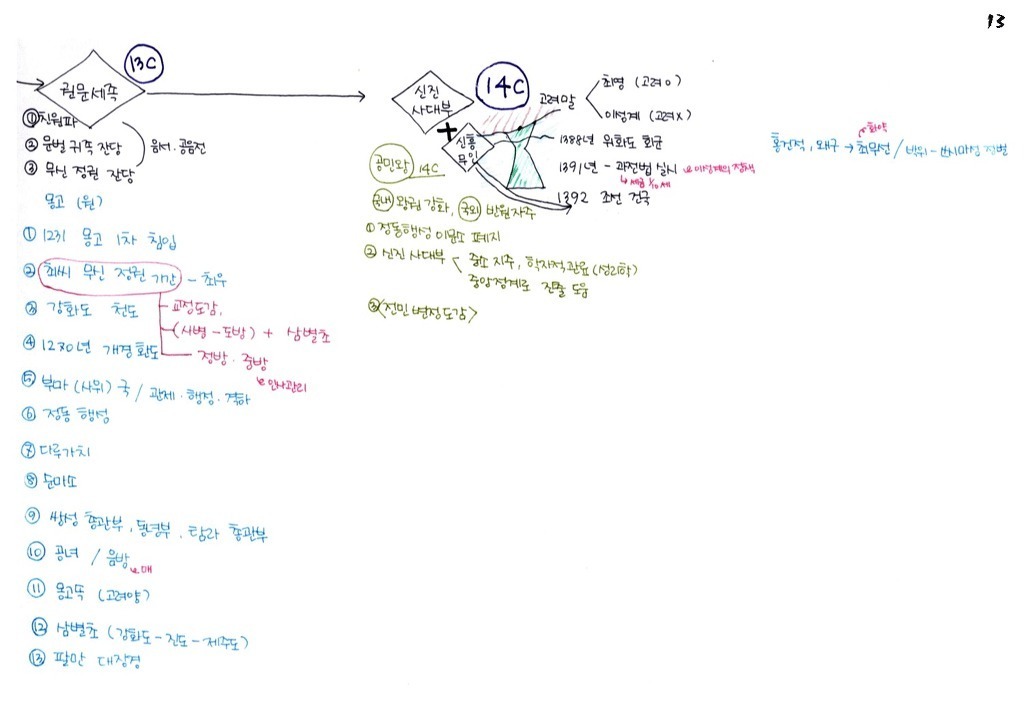 13
13C
권문세족
① 친원파
② 문벌 귀족 잔당
③ 무신 정권 잔당
음서·공음전
몽고 (원)
① 1231 몽고 1차 침입
② 최씨 무신 정권 기간 - 최우
교정도감,
(사병 - 도방) + 삼별초
정방·중방
↳ 인사관리
③ 강화도 천도
④ 1270년 개경환도
⑤ 부마(사위)국 / 관제·행정·격하
⑥ 정동 행성
⑦ 다루가치
⑧ 순마소
⑨ 쌍성 총관부, 동녕부, 탐라 총관부
⑩ 공녀 / 응방
↳ 매
⑪ 몽고풍 (고려양)
⑫ 삼별초 (강화도 - 진도 - 제주도)
⑬ 팔만 대장경
신진
사대부
14C
+
신흥
무인
고려말
최영 (고려 O)
이성계 (고려 X)
1388년 위화도 회군
1391년 - 과전법 실시 이성계의 정책
↳ 세금 1/10세
1392 조선 건국
공민왕 14C
국내 왕권 강화, 국외 반원자주
① 정동행성 이문소 폐지
② 신진 사대부 < 중소 지주, 학자적 관료 (성리학)
중앙정계로 진출 도움
③ <전민변정도감>
화약
홍건적, 왜구 → 최무선 / 박위 - 쓰시마섬 정벌